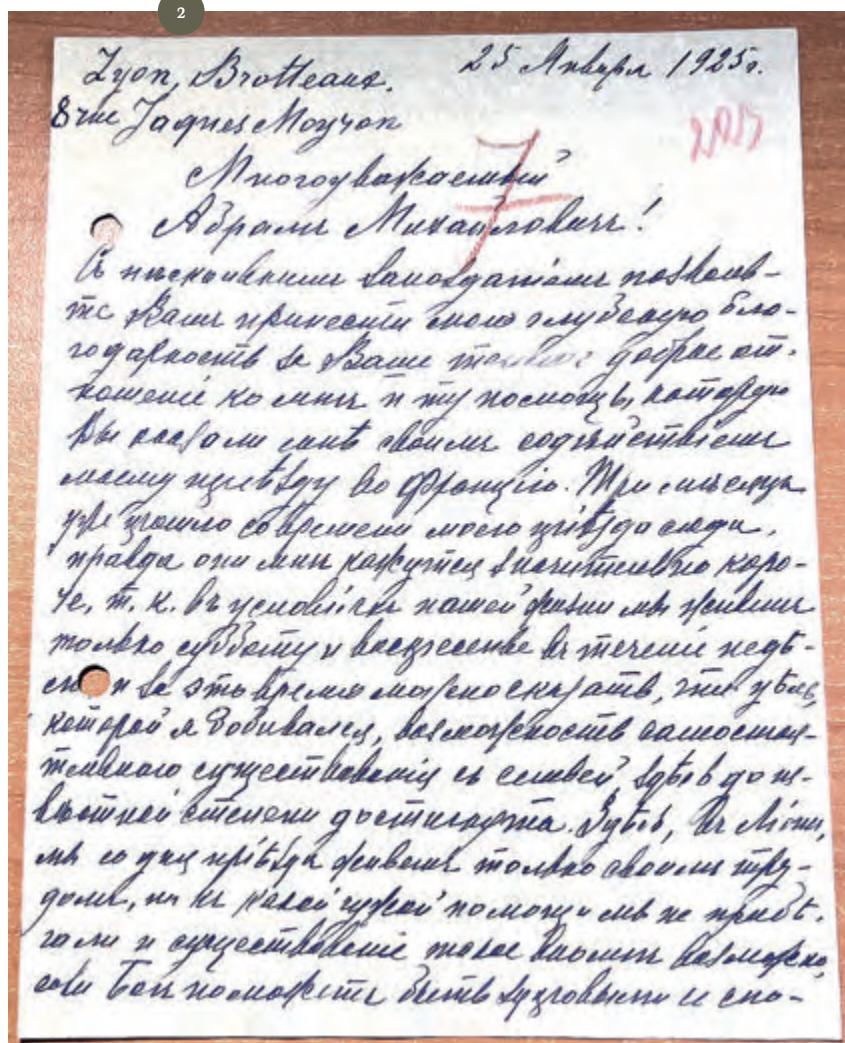 2
Lyon, Brotteaux. 25 Января 1925г.
8 rue Jaques Moyron
1925
7
Многоуважаемый
Абрамъ Михайловичъ!
Съ нѣсколькимъ запозданіемъ позволь-
те Вамъ принести мою глубокую бла-
годарность за Ваше доброе от-
ношеніе ко мнѣ и ту помощь, которую
Вы оказали мнѣ своимъ содѣйствіемъ
моему пріѣзду во Францію. Три мѣсяца
уже прошло со времени моего пріѣзда сюда,
правда они мнѣ кажутся значительно коро-
че, т. к. въ условіяхъ нашей жизни мы живемъ
только субботу и воскресенье въ теченіе недѣ-
ли и за это время можно сказать, что цѣль,
которой я добивался, возможность самостоя-
тельнаго существованія съ семьей, здѣсь до из-
вѣстной степени достигнута. Здѣсь, въ Ліонѣ,
мы со дня пріѣзда живемъ только своимъ тру-
домъ, ни къ какой чужой помощи мы не прибѣ-
гали и существованіе такое вполнѣ возможно,
если Богъ поможетъ быть здоровыми и спо-